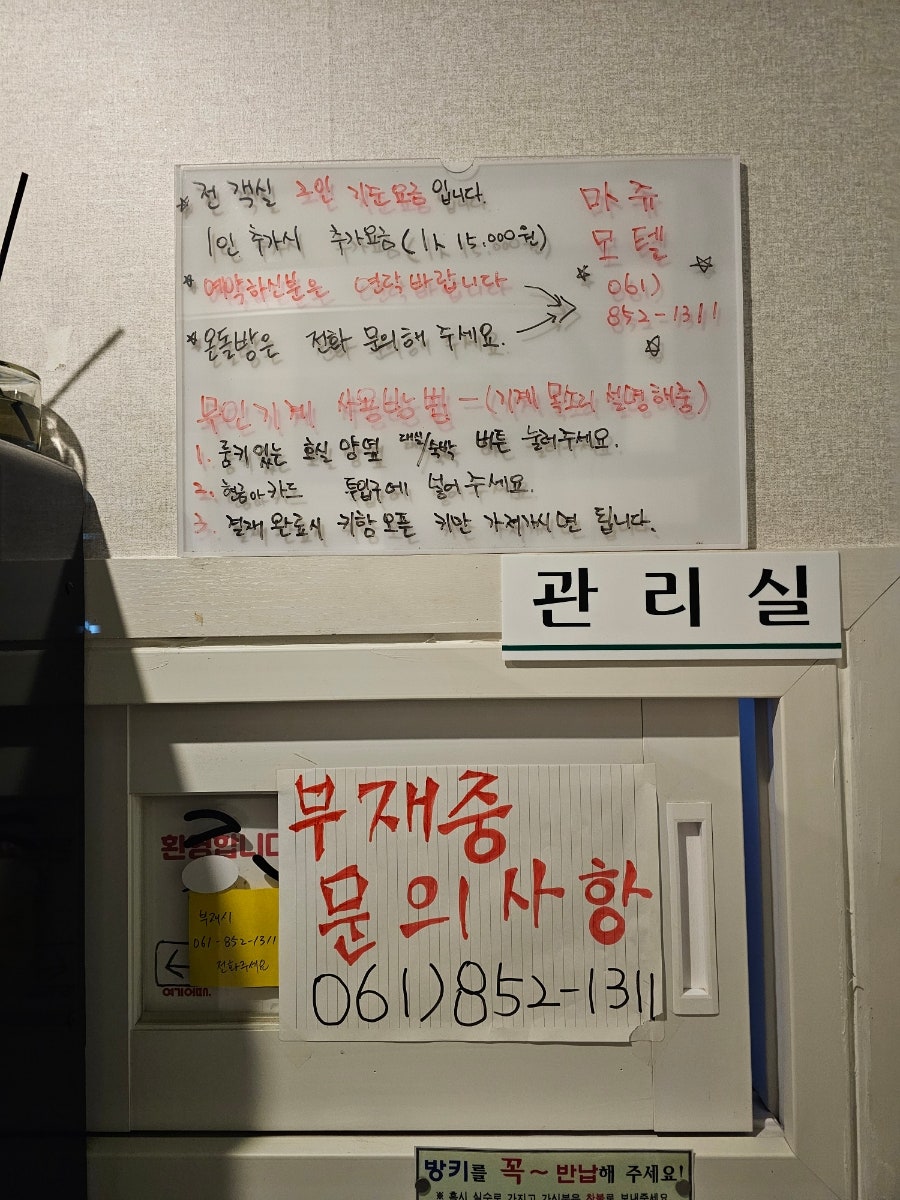 ☆ 전 객실 2인 기준요금 입니다.
1인 추가시 추가요금(1人 15.000원)
☆ 예약하신분은 연락바랍니다
☆ 온돌방은 전화 문의해 주세요.
마쥬
모텔
061)
852-1311
무인기계 사용방법 - (기계 목소리 설명해줌)
1. 룸키있는 호실 양옆 대실/숙박 버튼 눌러주세요.
2. 현금이나 카드 투입구에 넣어주세요.
3. 결재 완료시 키함오픈 키만 가져가시면 됩니다.
관리실
부재중
문의사항
061)852-1311
환영합니다
부재시
061-852-1311
전화주세요
←
방키를 꼭~ 반납해 주세요!
※ 혹시 실수로 가지고 가신분은 착불로 보내주세요